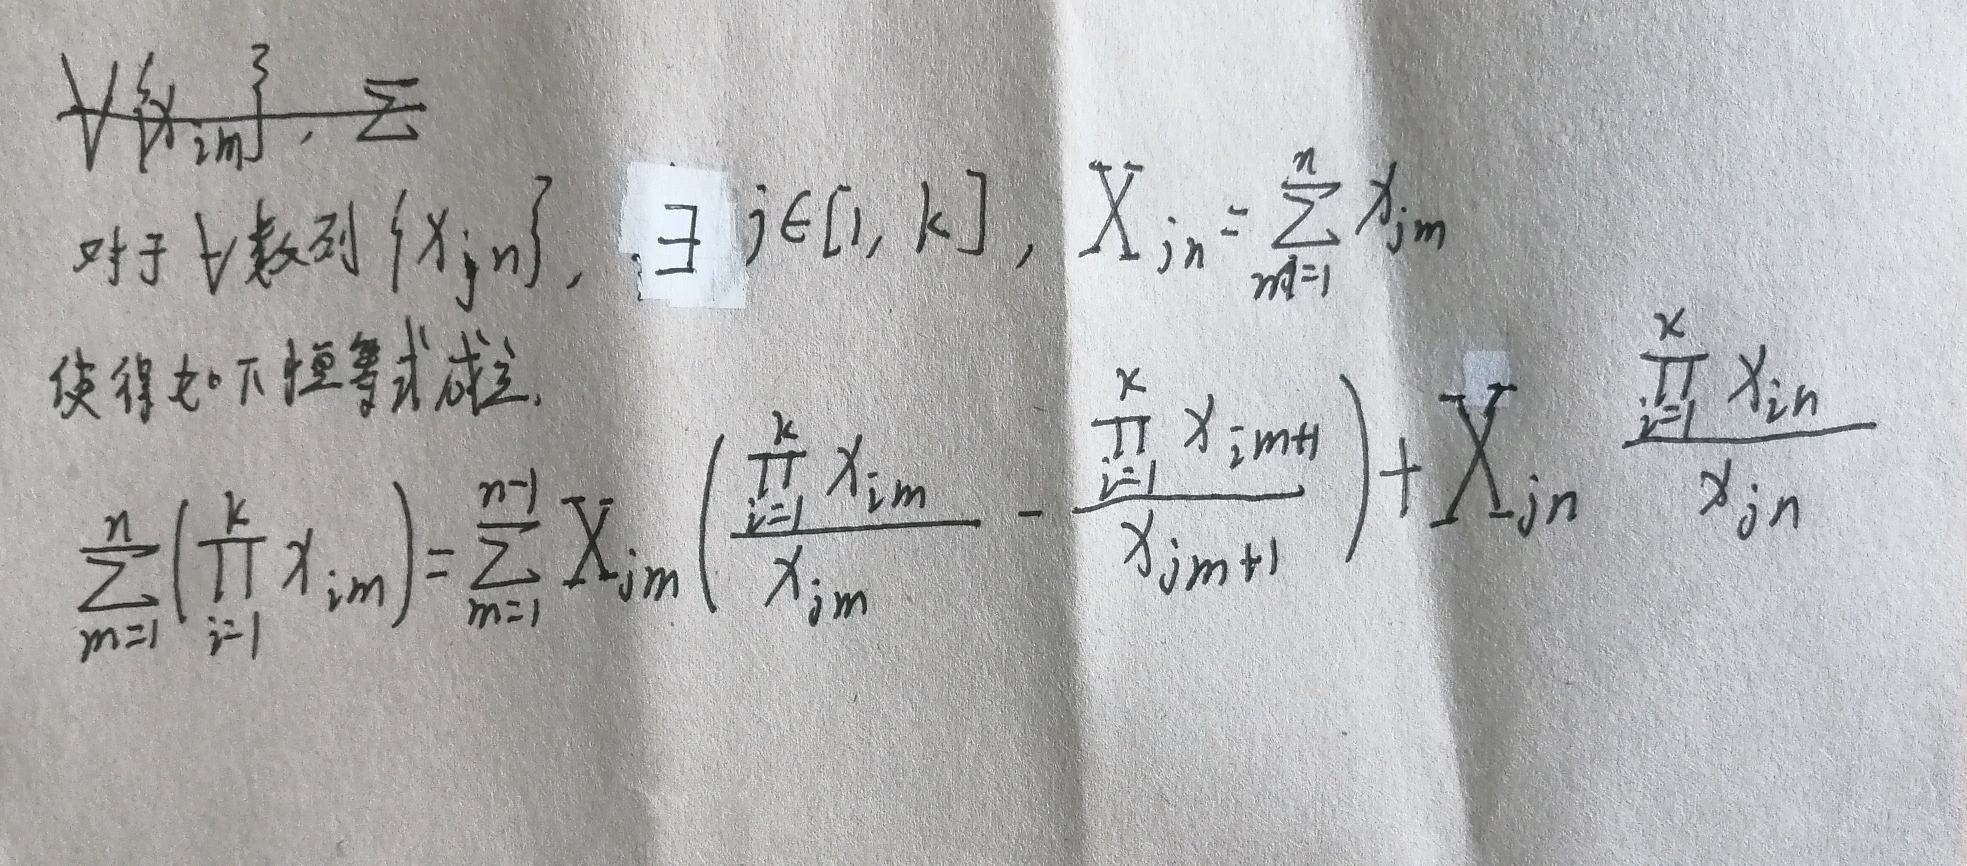 ∀{x_{im}}, Σ
对于∀数列{x_{jn}}, ∃ j∈[1, k], X_{jn} = \sum_{m=1}^{n} x_{jm}
使得如下恒等式成立.
\sum_{m=1}^{n} ( \prod_{i=1}^{k} x_{im} ) = \sum_{m=1}^{n-1} X_{jm} ( \frac{\prod_{i=1}^{k} x_{im}}{x_{jm}} - \frac{\prod_{i=1}^{k} x_{im+1}}{x_{jm+1}} ) + X_{jn} \frac{\prod_{i=1}^{k} x_{in}}{x_{jn}}